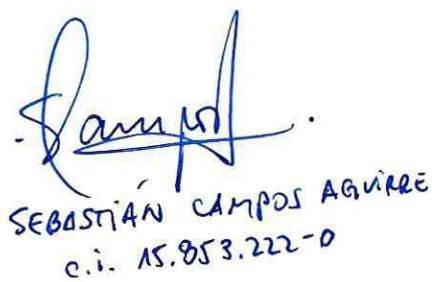 SCampos
SEBASTIÁN CAMPOS AGUIRRE
c.i. 15.853.222-0